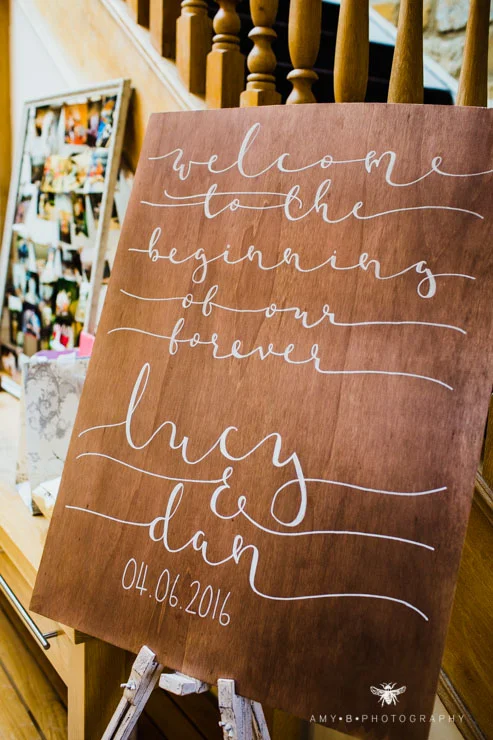 welcome
to the
beginning
of our
forever
lucy
&
dan
04.06.2016
AMY•B•PHOTOGRAPHY